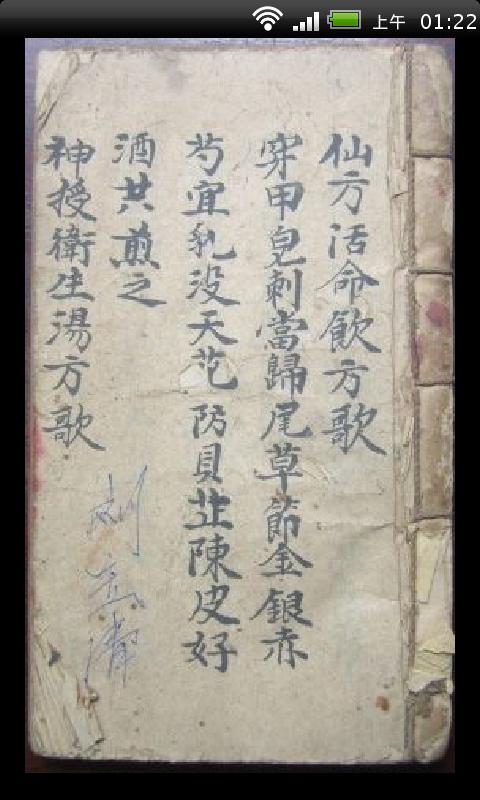 上午 01:22
仙方活命飲方歌
穿甲皂刺當歸尾草節金銀赤
芍宜乳没天花防貝芷陳皮好
酒共煎之
神授衛生湯方歌